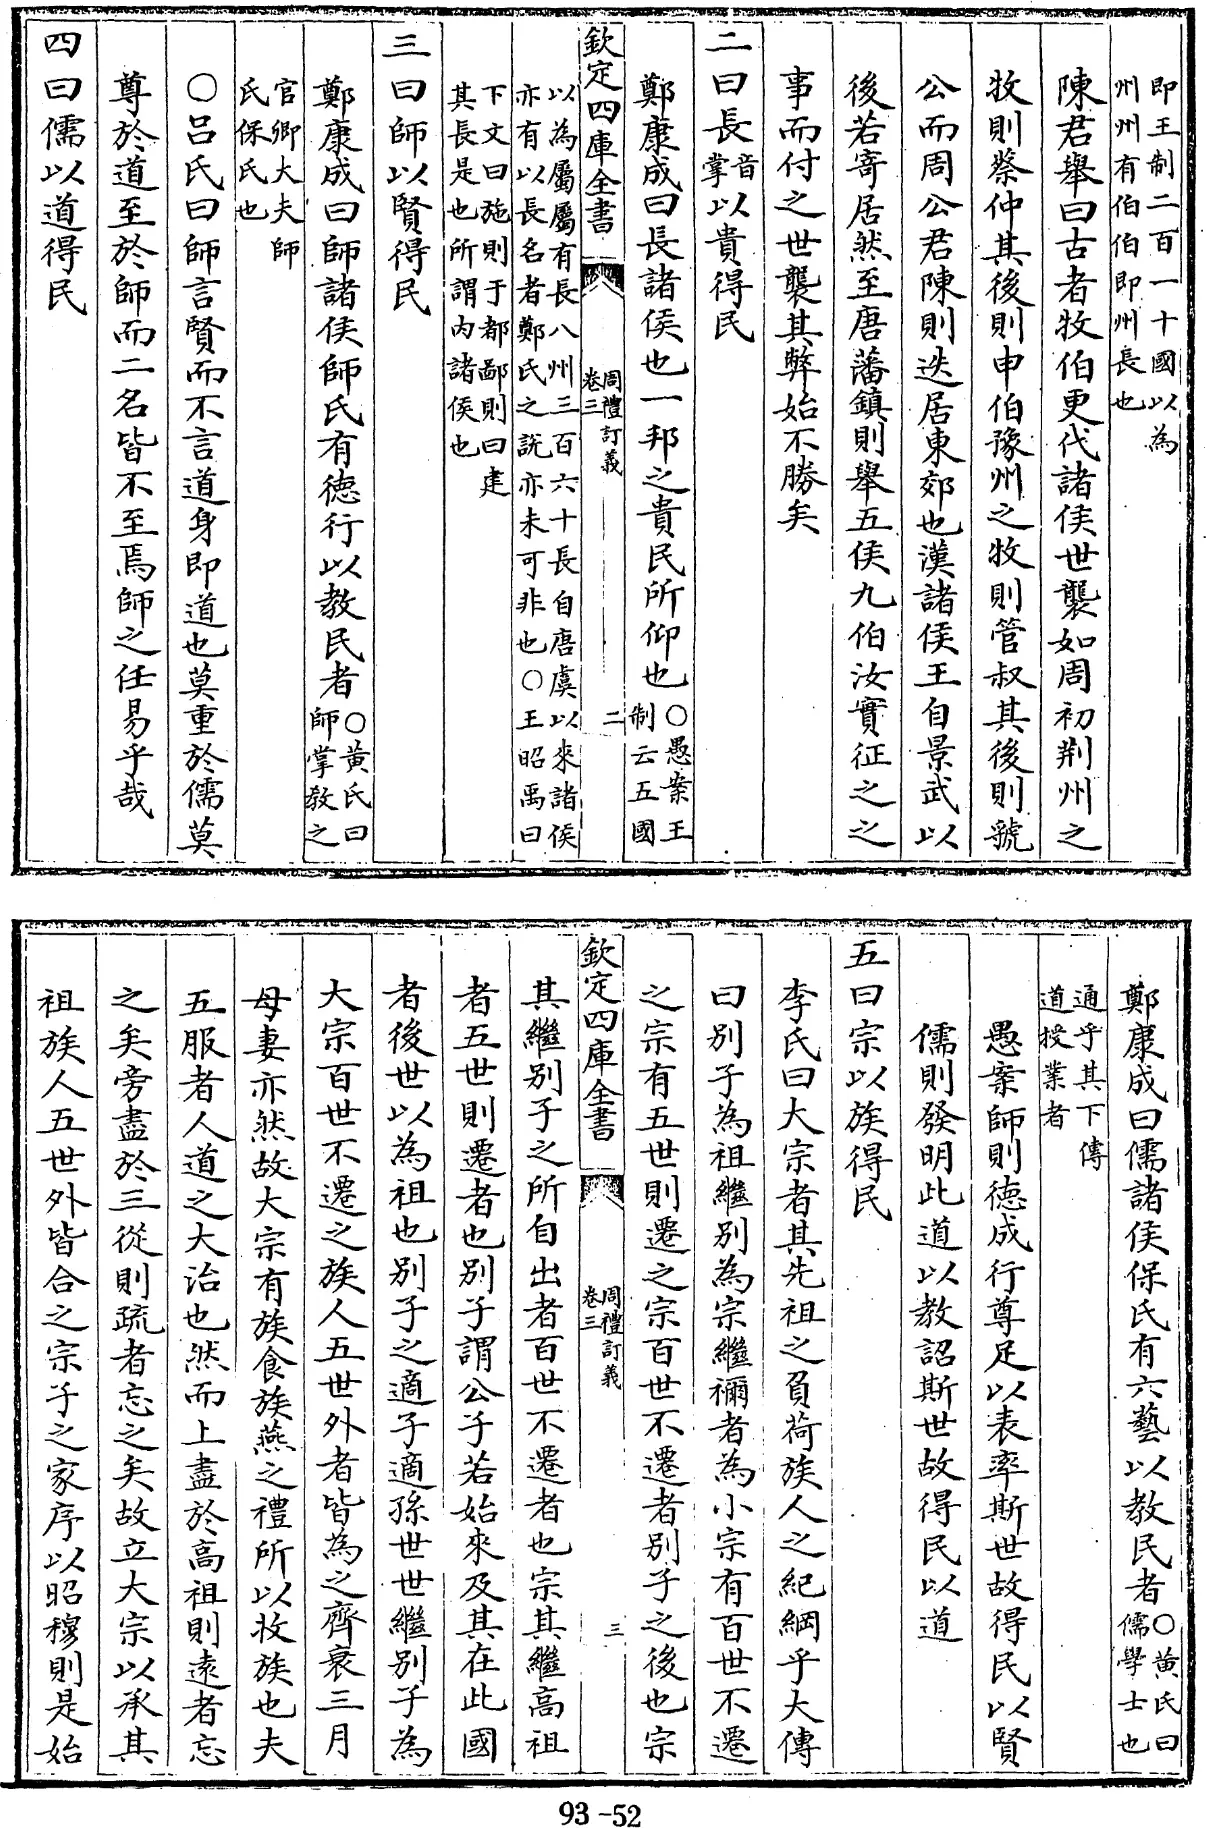 即王制二百一十國以為
州州有伯伯即州長也
陳君舉曰古者牧伯更代諸侯世襲如周初荆州之
牧則蔡仲其後則申伯豫州之牧則管叔其後則虢
公而周公君陳則迭居東郊也漢諸侯王自景武以
後若寄居然至唐藩鎮則舉五侯九伯汝實征之之
事而付之世襲其弊始不勝矣
二曰長音掌以貴得民
鄭康成曰長諸侯也一邦之貴民所仰也○愚案王制云五國
欽定四庫全書 周禮訂義卷三 二
以為屬屬有長八州三百六十長自唐虞以來諸侯
亦有以長名者鄭氏之説亦未可非也○王昭禹曰
下文曰施則于都鄙則曰建
其長是也所謂内諸侯也
三曰師以賢得民
鄭康成曰師諸侯師氏有德行以教民者○黄氏曰師掌教之
官卿大夫師
氏保氏也
○吕氏曰師言賢而不言道身即道也莫重於儒莫
尊於道至於師而二名皆不至焉師之任易乎哉
四曰儒以道得民
鄭康成曰儒諸侯保氏有六藝以教民者○黄氏曰儒學士也
通乎其下傳
道授業者
愚案師則德成行尊足以表率斯世故得民以賢
儒則發明此道以教詔斯世故得民以道
五曰宗以族得民
李氏曰大宗者其先祖之負荷族人之紀綱乎大傳
曰別子為祖繼別為宗繼禰者為小宗有百世不遷
之宗有五世則遷之宗百世不遷者別子之後也宗
欽定四庫全書 周禮訂義卷三 三
其繼別子之所自出者百世不遷者也宗其繼高祖
者五世則遷者也別子謂公子若始來及其在此國
者後世以為祖也別子之適子適孫世世繼別子為
大宗百世不遷之族人五世外者皆為之齊衰三月
母妻亦然故大宗有族食族燕之禮所以收族也夫
五服者人道之大治也然而上盡於高祖則遠者忘
之矣旁盡於三從則疏者忘之矣故立大宗以承其
祖族人五世外皆合之宗子之家序以昭穆則是始
93-52